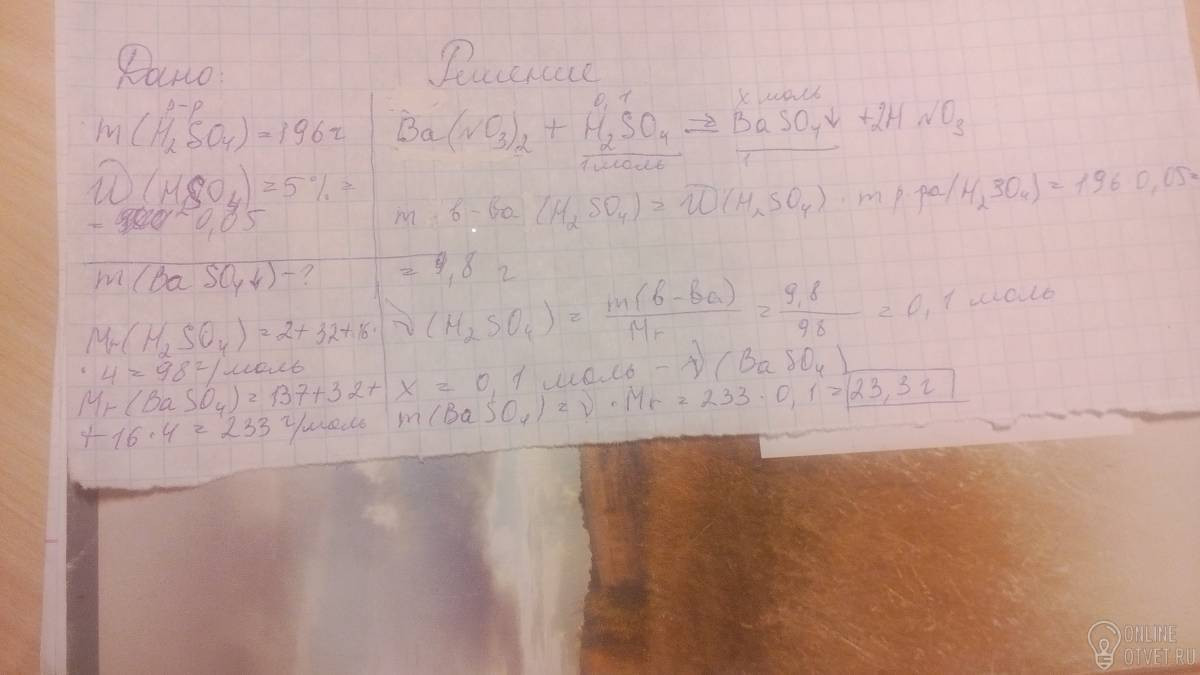 Дано:
р-р
m(H₂SO₄) = 196 г
W(H₂SO₄) = 5% =
= 0,05
m(BaSO₄↓) - ?
Mr(H₂SO₄) = 2 + 32 + 16 ·
· 4 = 98 г/моль
Mr(BaSO₄) = 137 + 32 +
+ 16 · 4 = 233 г/моль
Решение
0,1 x моль
Ba(NO₃)₂ + H₂SO₄ ⇒ BaSO₄↓ + 2HNO₃
1 моль 1
m в-ва (H₂SO₄) = W(H₂SO₄) · m р-ра(H₂SO₄) = 196 0,05 =
= 9,8 г
ν(H₂SO₄) = m(в-ва) / Mr = 9,8 / 98 = 0,1 моль
x = 0,1 моль - ν(BaSO₄)
m(BaSO₄) = ν · Mr = 233 · 0,1 = 23,3 г
ONLINE
OTVET.RU